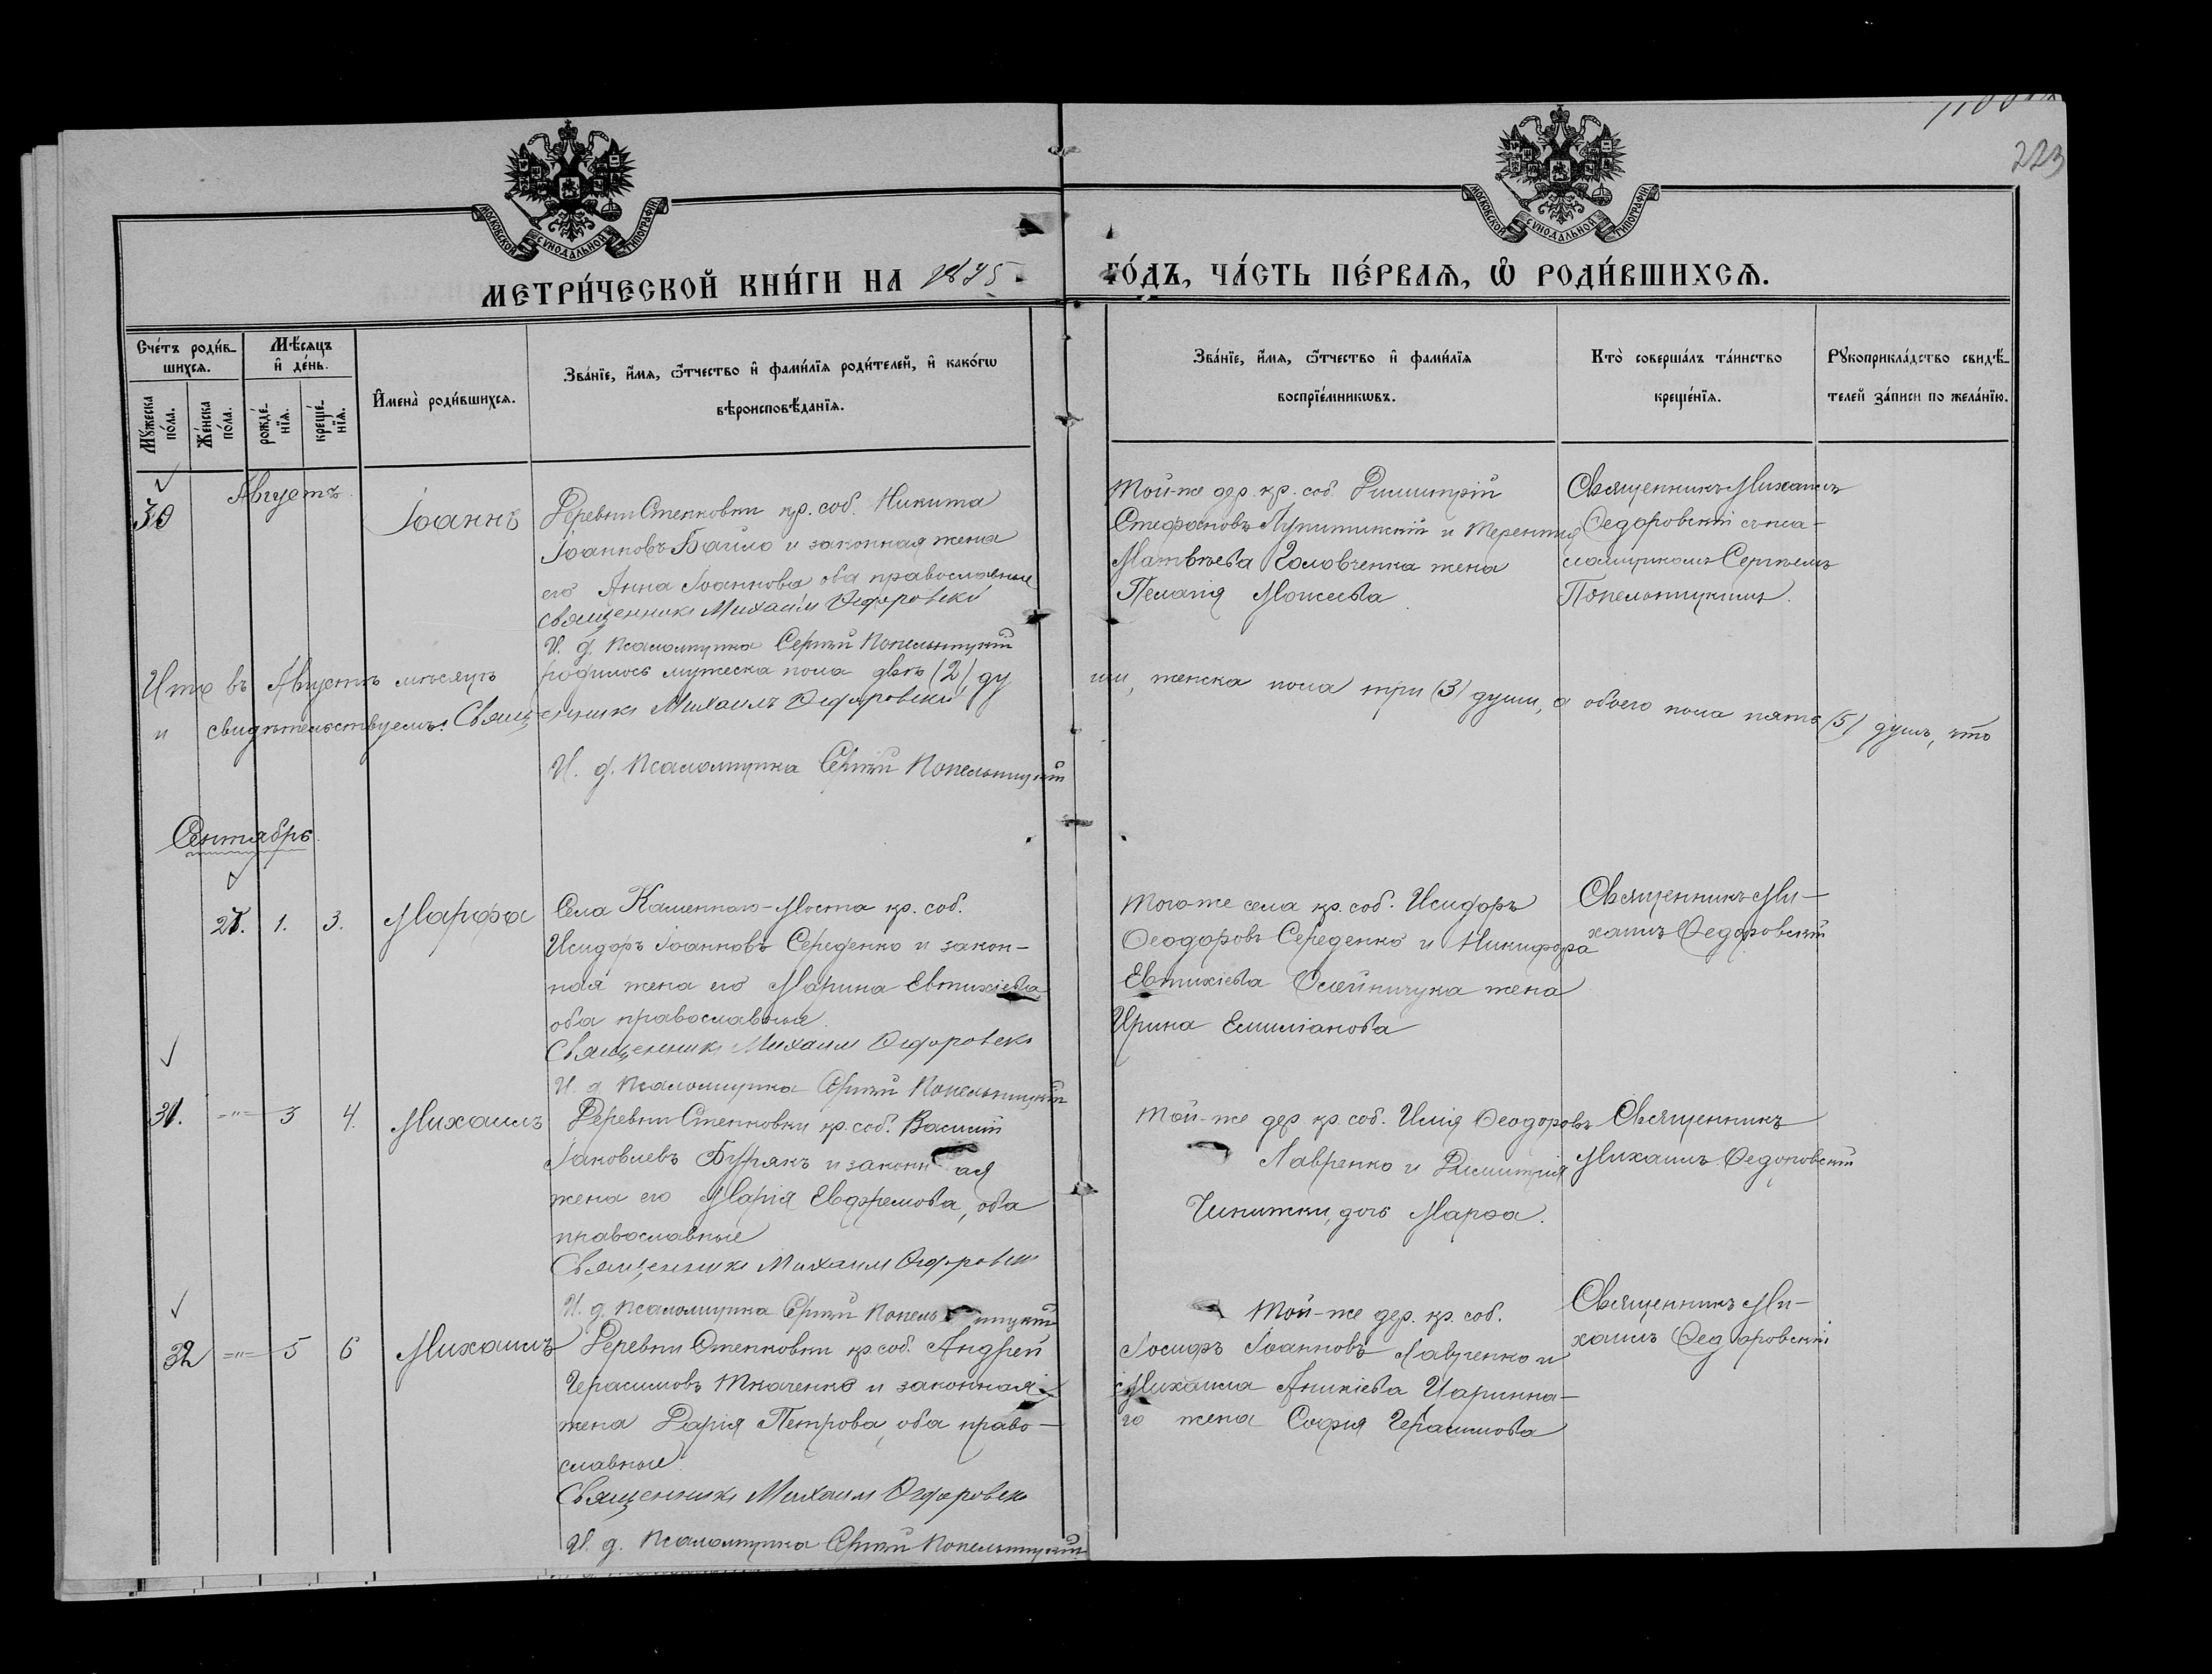 223
МОСКОВСКОЙ СУНОДАЛЬНОЙ ТИПОГРАФІИ
МОСКОВСКОЙ СУНОДАЛЬНОЙ ТИПОГРАФІИ
МЕТРИ́ЧЕСКОЙ КНИ́ГИ НА 1875 ГО́ДЪ, ЧА́СТЬ ПЕ́РВАѦ, Ѽ РОДИ́ВШИХСѦ.
Сче́тъ роди́в-
шихсѧ.
Мꙋ́жеска по́ла.
Же́нска по́ла.
Мѣ́сѧцъ
и҆ де́нь.
рожде́-
нїѧ.
креще́-
нїѧ.
И҆мена̀ роди́вшихсѧ.
Зва́нїе, и҆́мѧ, ѻ҆́тчество и҆ фами́лїѧ роди́телей, и҆ како́гѡ
вѣроисповѣ́данїѧ.
Зва́нїе, и҆́мѧ, ѻ҆́тчество и҆ фами́лїѧ
воспрїе́мникѡвъ.
Кто̀ соверша́лъ та́инство
креще́нїѧ.
Рꙋкоприкла́дство свидѣ́-
телей за́писи по жела́нїю.
Августъ
30
Іоаннъ
Деревни Степковки кр. соб. Никита
Іоанновъ Байло и законная жена
его Анна Іоаннова оба православные
Священникъ Михаилъ Ѳедоровскій
И. д. Псаломщика Сергѣй Попельницкій
Той-же дер. кр. соб. Димитрій
Стефановъ Лупитинскій и Терентія
Матвѣева Головченка жена
Пелагія Моисеева
Священникъ Михаилъ
Ѳедоровскій съ пса-
ломщикомъ Сергѣемъ
Попельницкимъ.
Итого въ Августѣ мѣсяцѣ родилось мужеска пола двѣ (2) ду ши, женска пола три (3) души, а обоего пола пять (5) душъ, что
и свидѣтельствуемъ: Священникъ Михаилъ Ѳедоровскій
И. д. Псаломщика Сергѣй Попельницкій
Сентябрь.
1. 3. Марфа
Села Каменнаго-Моста кр. соб.
Исидоръ Іоанновъ Середенко и закон-
ная жена его Марина Евтихіева
оба православные
Священникъ Михаилъ Ѳедоровскій
И. д. Псаломщика Сергѣй Попельницкій
Того-же села кр. соб. Исидоръ
Ѳеодоровъ Середенко и Никифора
Евтихіева Олейничука жена
Ирина Емиліанова
Священникъ Ми-
хаилъ Ѳедоровскій
31. -"- 3 4. Михаилъ
Деревни Степковки кр. соб. Василій
Іаковлевъ Бурякъ и законн ая
жена его Марія Евфремова, оба
православные
Священникъ Михаилъ Ѳедоровскій
И. д. Псаломщика Сергѣй Попель ницкій
Той-же дер. кр. соб. Илія Ѳеодоровъ
Лавренко и Димитрія
дочь Марѳа.
Священникъ
Михаилъ Ѳедоровскій
32 -"- 5 6 Михаилъ
Деревни Степковки кр. соб. Андрей
Герасимовъ Ткаченко и законная
жена Дарія Петрова, оба право-
славные
Священникъ Михаилъ Ѳедоровскій
И. д. Псаломщика Сергѣй Попельницкій
Той-же дер. кр. соб.
Іосифъ Іоанновъ Лавренко и
Михаила Аникіева Царинна-
го жена Софія Герасимова
Священникъ Ми-
хаилъ Ѳедоровскій